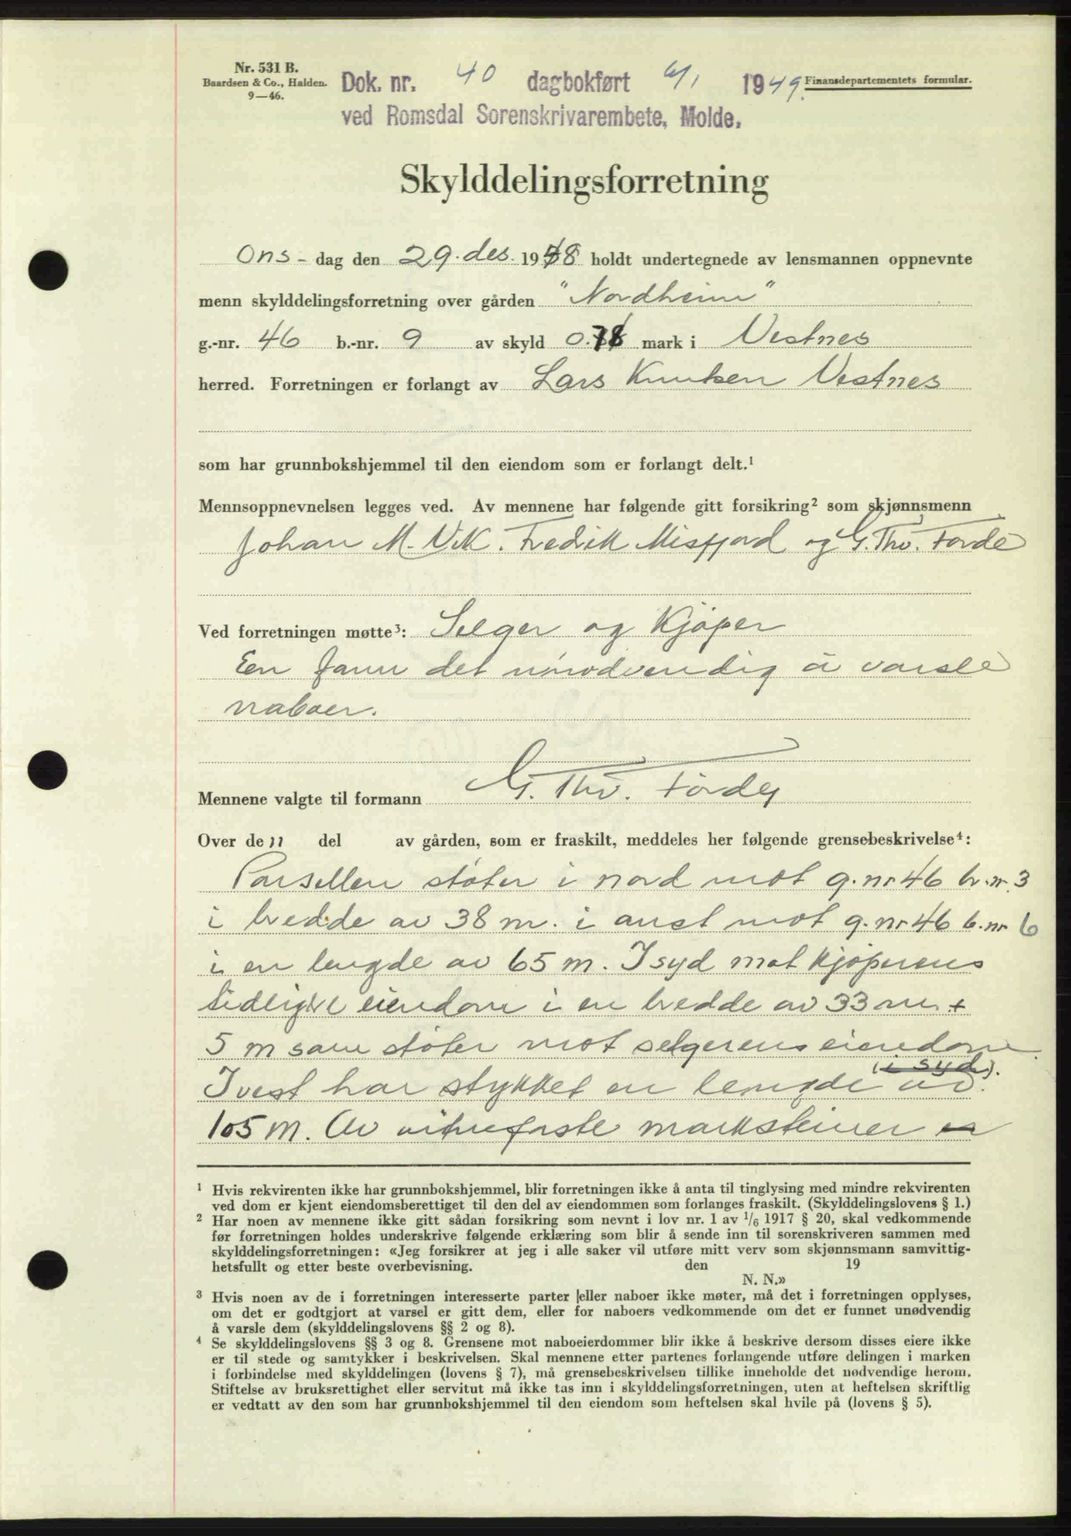 Nr. 531 B.
Baardsen & Co., Halden.
9—46.
Dok. nr. 40 dagbokført 6/1 1949.
Finansdepartementets formular.
ved Romsdal Sorenskrivarembete, Molde.
Skylddelingsforretning
Ons- dag den 29. des. 1948 holdt undertegnede av lensmannen oppnevnte
menn skylddelingsforretning over gården "Nordheim"
g.-nr. 46 b.-nr. 9 av skyld 0.78 mark i Vestnes
herred. Forretningen er forlangt av Lars Knutsen Vestnes
som har grunnbokshjemmel til den eiendom som er forlangt delt.¹
Mennsoppnevnelsen legges ved. Av mennene har følgende gitt forsikring² som skjønnsmenn
Johan M. Vik. Fredrik Misfjord og G. Thv.Førde
Ved forretningen møtte³: Selger og Kjøper
En fann det unødvendig å varsle
naboer.
Mennene valgte til formann G. Thv. Førde
Over den del av gården, som er fraskilt, meddeles her følgende grensebeskrivelse⁴:
Parsellen støter i nord mot g.nr 46 b.nr. 3
i bredde av 38 m. i aust mot g.nr 46 b.nr 6
i en lengde av 65 m. I syd mot kjøperens
tidligere eiendom i en bredde av 33 m. +
5 m som støter mot selgerens eiendom
(i syd).
I vest har stykket en lengde av
105 m. Av merksteiner er
¹ Hvis rekvirenten ikke har grunnbokshjemmel, blir forretningen ikke å anta til tinglysing med mindre rekvirenten
ved dom er kjent eiendomsberettiget til den del av eiendommen som forlanges fraskilt. (Skylddelingslovens § 1.)
² Har noen av mennene ikke gitt sådan forsikring som nevnt i lov nr. 1 av 1/6 1917 § 20, skal vedkommende
før forretningen holdes underskrive følgende erklæring som blir å sende inn til sorenskriveren sammen med
skylddelingsforretningen: «Jeg forsikrer at jeg i alle saker vil utføre mitt verv som skjønnsmann samvittig-
hetsfullt og etter beste overbevisning. den 19
N. N.»
³ Hvis noen av de i forretningen interesserte parter eller naboer ikke møter, må det i forretningen opplyses,
om det er godtgjort at varsel er gitt dem, eller for naboers vedkommende om det er funnet unødvendig
å varsle dem (skylddelingslovens §§ 2 og 8).
⁴ Se skylddelingslovens §§ 3 og 8. Grensene mot naboeierdommer blir ikke å beskrive dersom disses eiere ikke
er til stede og samtykker i beskrivelsen. Skal mennene etter partenes forlangende utføre delingen i marken
i forbindelse med skylddelingen (lovens § 7), må grensebeskrivelsen tillike inneholde det nødvendige herom.
Stiftelse av bruksrettighet eller servitut må ikke tas inn i skylddelingsforretningen, uten at heftelsen skriftlig
er vedtatt av den som har grunnbokshjemmel til den eiendom som heftelsen skal hvile på (lovens § 5).